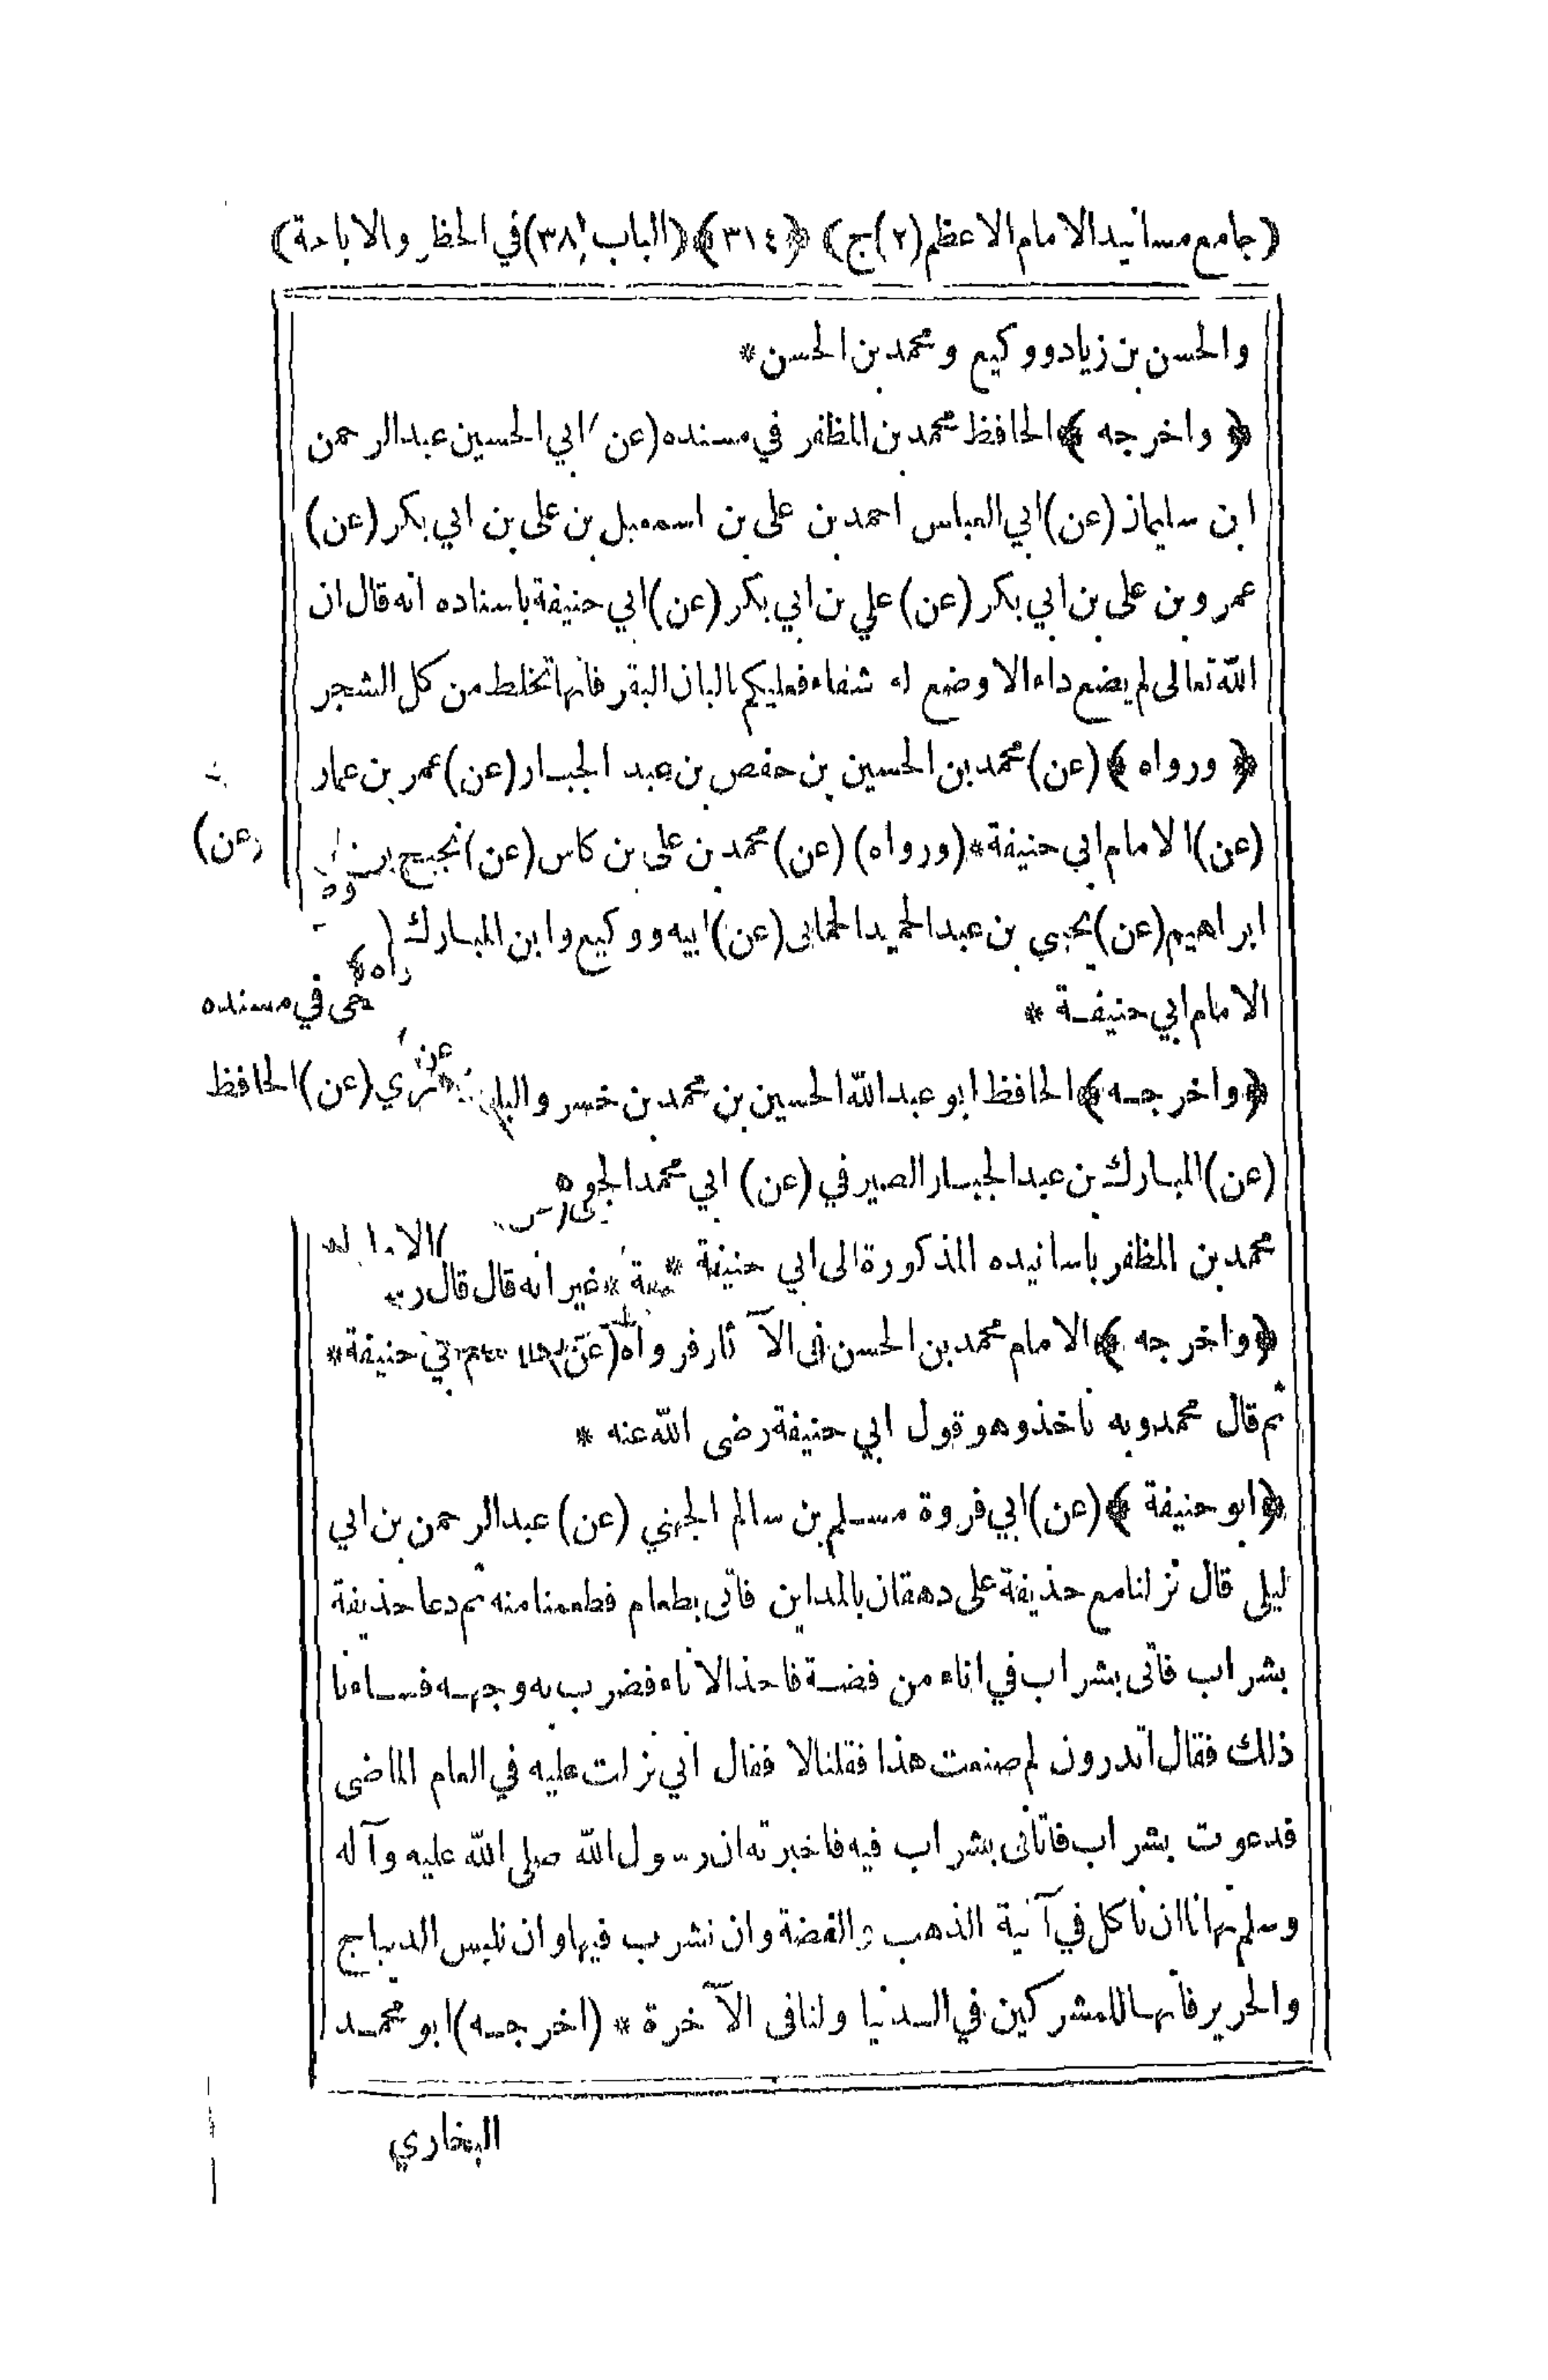 (جامع مسانيد الامام الاعظم (٢) ج) ﴿٣١٤﴾ (الباب (٣٨) في الحظر والاباحة)
والحسن بن زياد ووكيع ومحمد بن الحسن *
﴿ واخرجه ﴾ الحافظ محمد بن المظفر في مسنده (عن) ابي الحسين عبد الرحمن
ابن سليمان (عن) ابي العباس احمد بن على بن اسمعيل بن على بن ابي بكر (عن)
عمرو بن على بن ابي بكر (عن) علي بن ابي بكر (عن) ابي حنيفة باسناده انه قال ان
الله تعالى لم يضع داء الا وضع له شفاء فعليكم بالبان البقر فانها تخلط من كل الشجر
﴿ ورواه ﴾ (عن) محمد بن الحسين بن حفص بن عبد الجبار (عن) عمر بن عمار
(عن) الامام ابي حنيفة * (ورواه) (عن) محمد بن على بن كاس (عن) نجيح بن
ابراهيم (عن) يحيى بن عبد الحميد الحمانى (عن) ابيه ووكيع وابن المبارك (عن)
الامام ابي حنيفة *
﴿ واخرجه ﴾ الحافظ ابو عبد الله الحسين بن محمد بن خسرو في مسنده
(عن) المبارك بن عبد الجبار الصيرفي (عن) ابي محمد الجوهري (عن) الحافظ
محمد بن المظفر باسانيده المذكورة الى ابي حنيفة * غير انه قال قال
﴿ واخرجه ﴾ الامام محمد بن الحسن فى الآثار فرواه (عن) حنيفة *
ثم قال محمد وبه ناخذ وهو قول ابي حنيفة رضى الله عنه *
﴿ ابو حنيفة ﴾ (عن) ابي فروة مسلم بن سالم الجهني (عن) عبد الرحمن بن ابي
ليلى قال نزلنا مع حذيفة على دهقان بالمداين فاتى بطعام فطعمنا منه ثم دعا حذيفة
بشراب فاتى بشراب في اناء من فضة فاخذ الاناء فضرب به وجهه فساءنا
ذلك فقال اتدرون لم صنعت هذا فقلنا لا فقال اني نزلت عليه في العام الماضى
فدعوت بشراب فاتانى بشراب فيه فاخبرته ان رسول الله صلى الله عليه وآله
وسلم نهانا ان ناكل في آنية الذهب والفضة وان نشرب فيها وان نلبس الديباج
والحرير فانها للمشركين في الدنيا ولنا فى الآخرة * (اخرجه) ابو محمد
البخاري